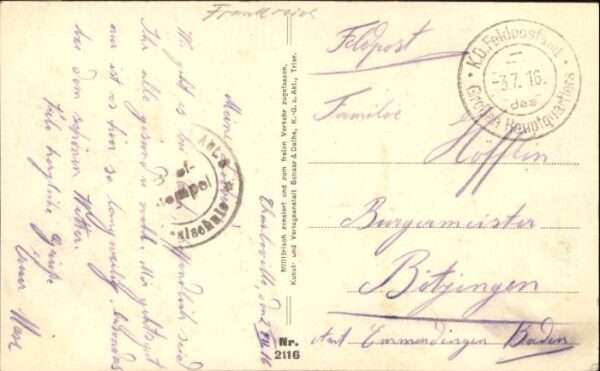 Frankreich
Feldpost
K.D. Feldpostamt
-3.7.16.
des
Großen Hauptquartiers
Familie
Höfflin
Bürgermeister
Bötzingen
Amt Emmendingen Baden
Militärisch zensiert und zum freien Verkehr zugelassen.
Kunst- und Verlagsanstalt Schaar & Dathe, K.-G. a. Akt., Trier.
Nr.
2116
Charleville, den 2. VII. 16
Meine Lieben!
Wie geht es
Ihr alle gesund und wohl. Mir geht's gut
nur ist es hier so langweilig, besonders
bei dem schönen Wetter.
Viele herzliche Grüße
Euer